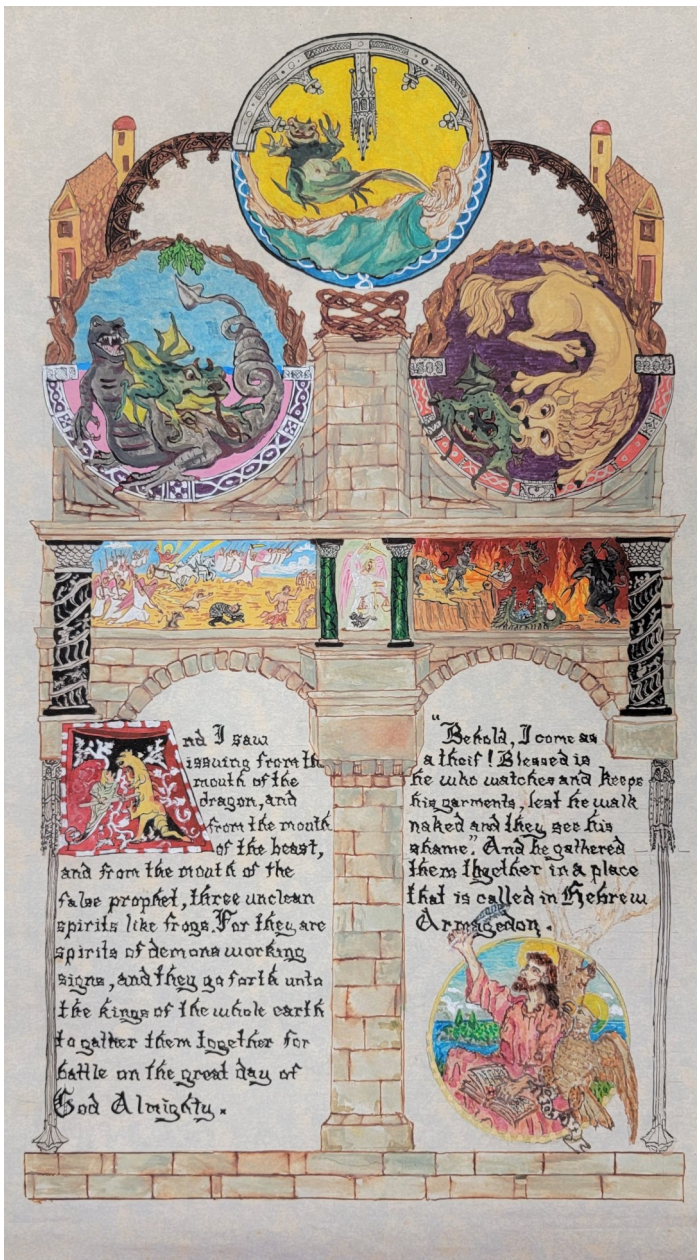 And I saw
issuing from th
mouth of the
dragon, and
from the mouth
of the beast,
and from the mouth of the
false prophet, three unclean
spirits like frogs. For they are
spirits of demons working
signs, and they go forth unto
the kings of the whole earth
to gather them together for
battle on the great day of
God Almighty.
"Behold, I come as
a theif! Blessed is
he who watches and keeps
his garments, lest he walk
naked and they see his
shame." And he gathered
them together in a place
that is called in Hebrew
Armagedon.